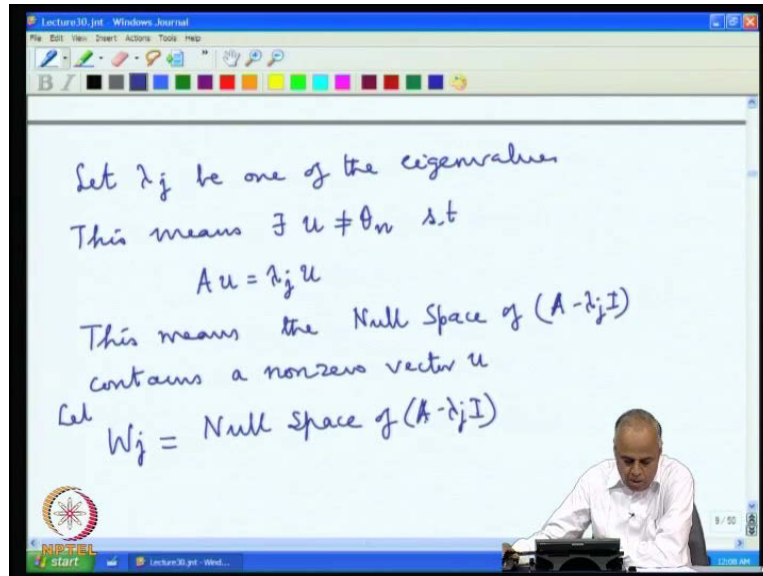 Lecture30.jnt - Windows Journal
File Edit View Insert Actions Tools Help
B I
Let λj be one of the eigenvalues
This means ∃ u ≠ θn s.t
Au = λj u
This means the Null Space of (A - λj I)
contains a nonzero vector u
Let
Wj = Null Space of (A - λj I)
9 / 50
NPTEL
start
Lecture30.jnt - Wind...
12:08 AM